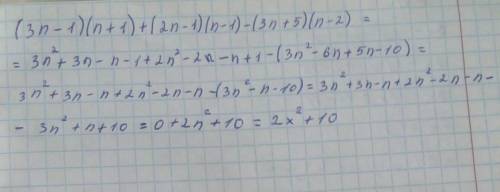 (3n-1)(n+1)+(2n-1)(n-1)-(3n+5)(n-2) =
= 3n²+3n-n-1+2n²-2n-n+1-(3n²-6n+5n-10)=
3n²+3n-n+2n²-2n-n-(3n²-n-10)=3n²+3n-n+2n²-2n-n-
- 3n²+n+10 = 0+2n²+10 = 2x²+10